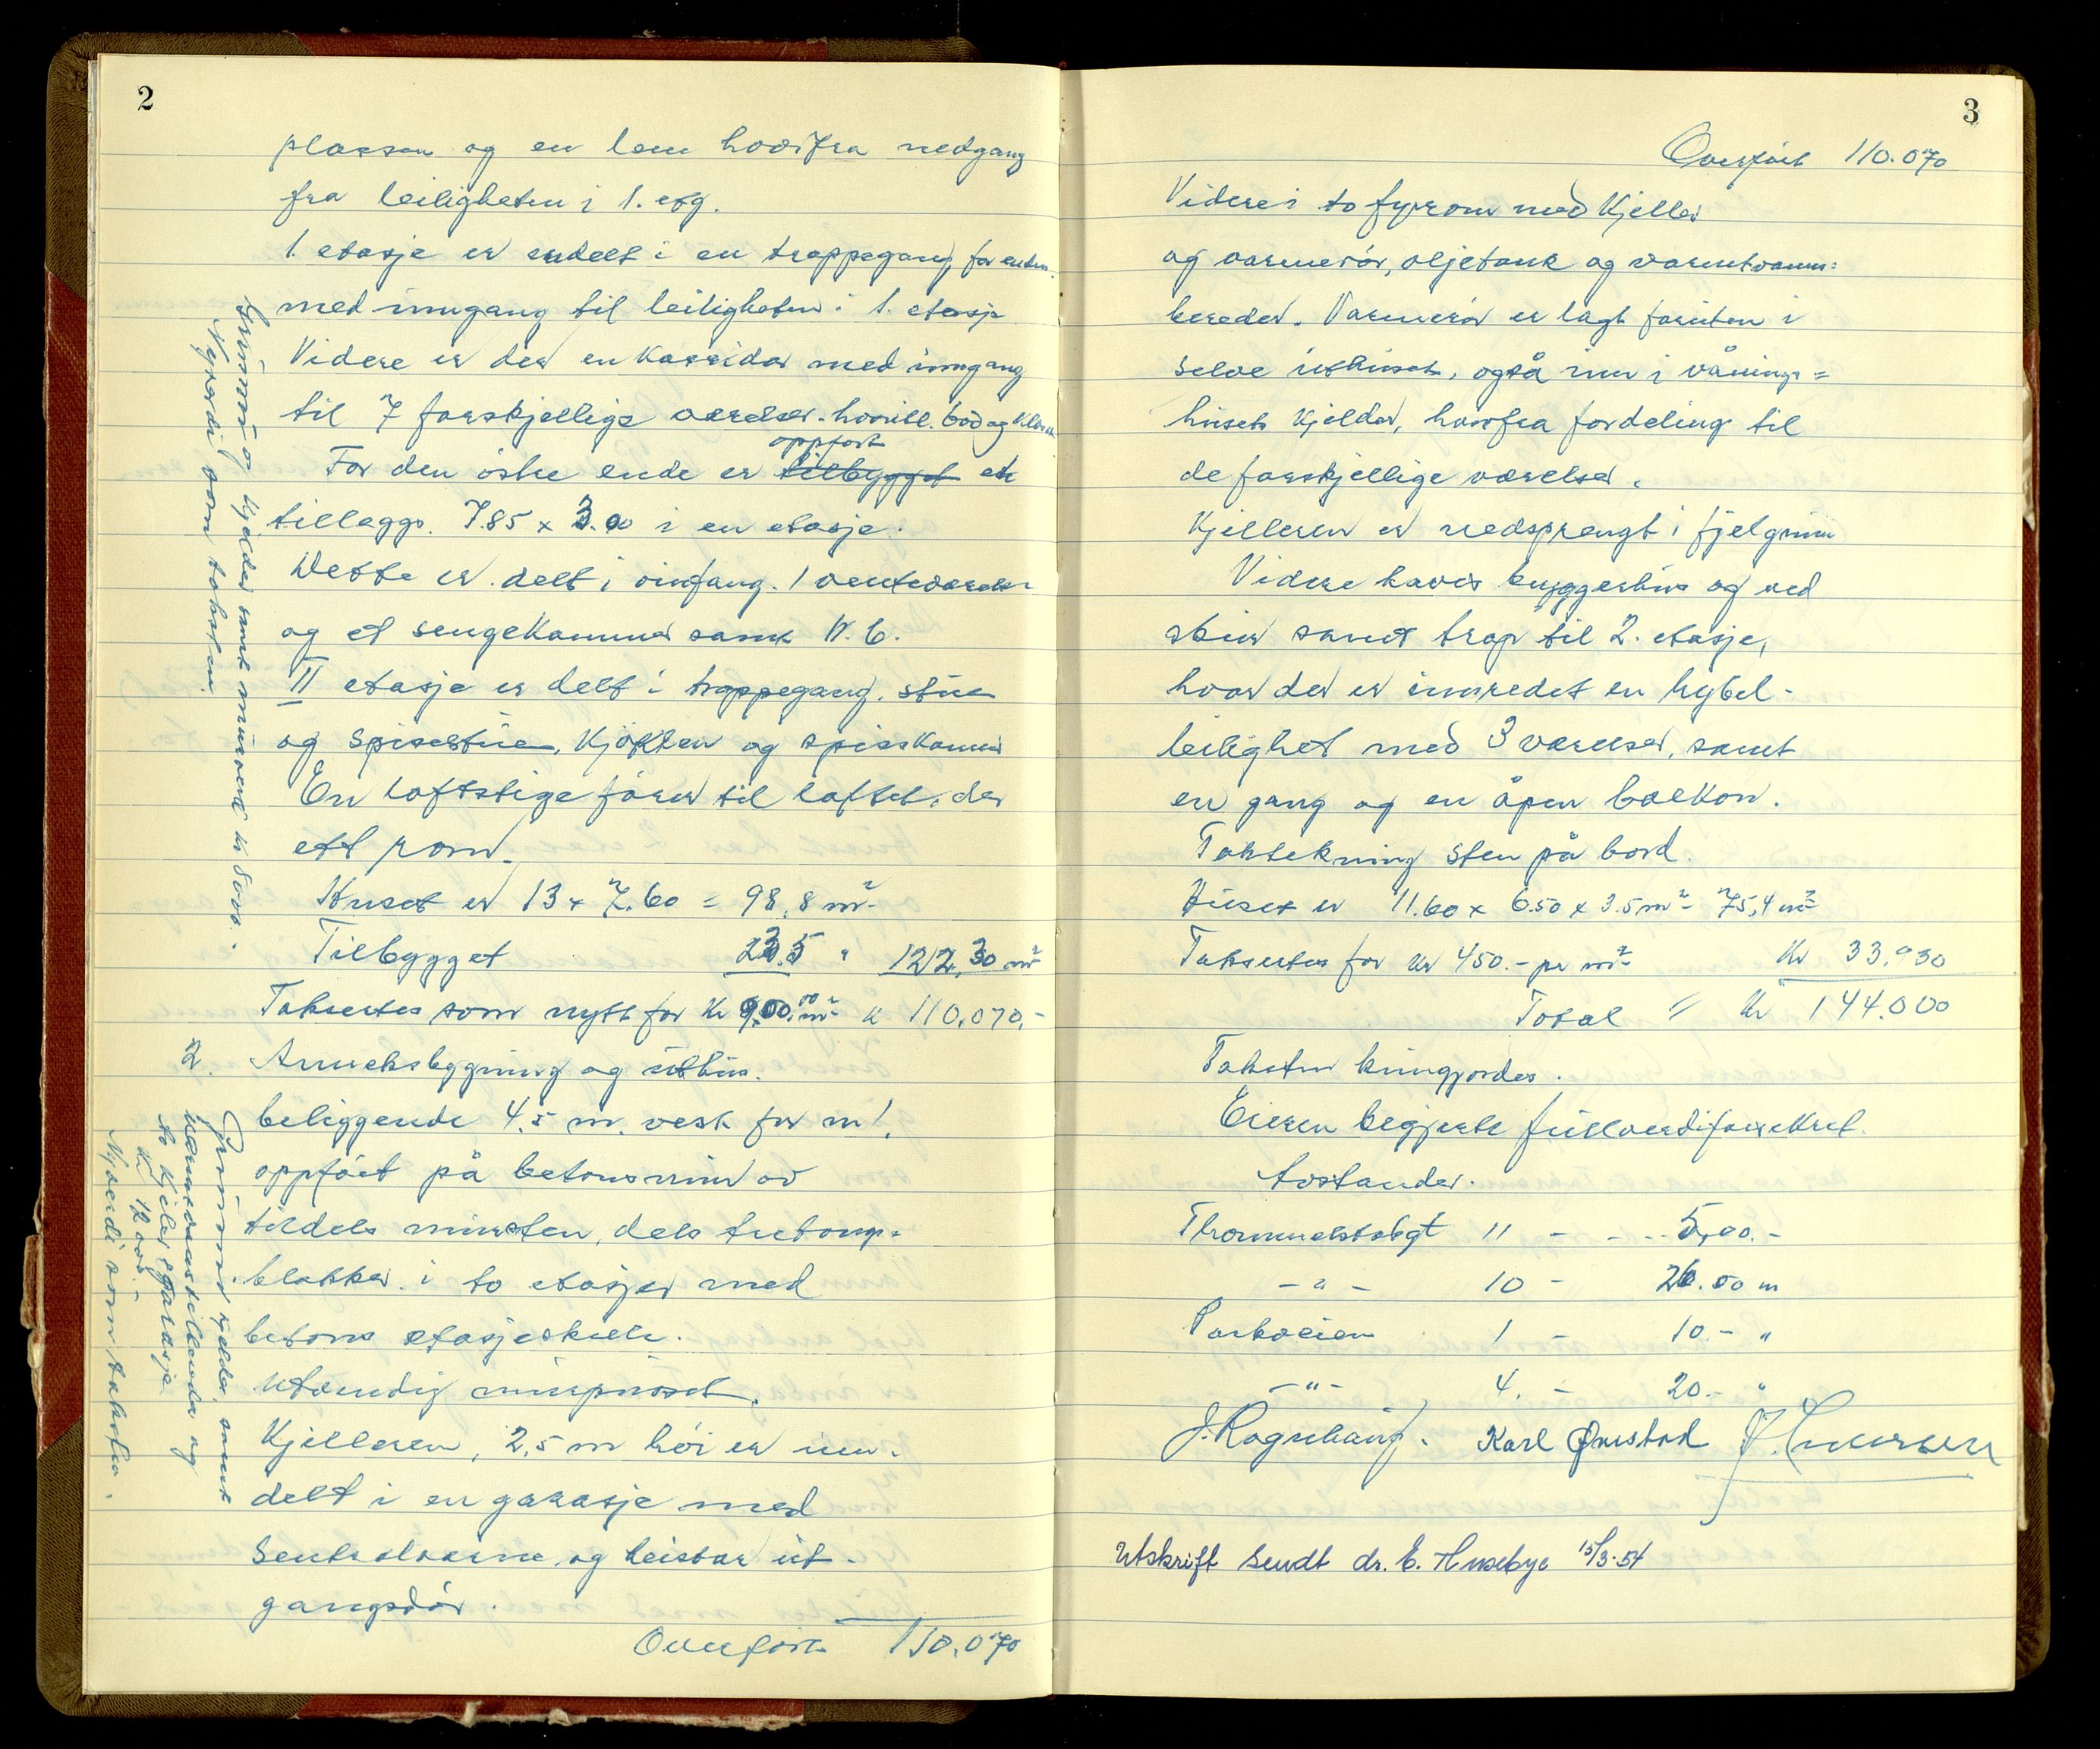 2
plassen og en lem hvorfra nedgang
fra leiligheten i 1. etg.
1. etasje er indelt i en trappegang for enden.
med inngang til leiligheten i 1. etasje
Videre er der en korridor med inngang
til 7 forskjellige værelser. hvorill. bod og
oppført
For den östre ende er tilbygget et
tillegg. 7.85 x 3.00 i en etasje.
Dette er delt i vinfang. 1 venteværelse
og et sengekammer samt W.C.
II etasje er delt i trappegang, stue
og spisestue, kjökken og spisskammer
En loftstige förer til loftet, der
ett rom.
Huset er 13 x 7.60 = 98,8 m²
Tilbygget 23.5 " 122,30 m²
Taksertes som nytt for Kr 900.00 m² k 110.070,-
2. Anneksbygning og uthus.
beliggende 4,5 m. vest for nr 1.
oppfört på betongmur av
tildels mursten, dels
blokker. i to etasjer med
betong etasjeskille.
Utvendig murpusset.
Kjelleren, 2,5 m höi er inn-
delt i en garasje med
Sentralvarme og ut-
gangsdör.
Overfört 110.070
Grunnmur og kjelder samt murverk kr 8000.-
Nyverdi som taksten.
Grunnmur kjelder, samt
og
to kjeler garasje
Kr 12000.-
Nyverdi som taksten.
3
Overfört 110.070
Videre i to fyrrom med kjeller
og varmerör, oljetank og varmtvanns=
bereder. Varmerör er lagt foruten i
selve uthuset, også inn i vånings=
husets kjelder, hvorfra fordeling til
de forskjellige værelser.
Kjelleren er nedsprengt i fjelgrunn
Videre haves bryggerhus og ved
skur samt trap til 2. etasje,
hvor der er innredet en hybel-
leilighet med 3 værelser, samt
en gang og en åpen balkon.
Taktekning sten på bord.
Huset er 11.60 x 6.50 x 3.5 m² - 75,4 m²
Taksertes for kr 450.- pr m² Kr 33.930
Total = Kr 144.000
Taksten kunngjordes.
Eieren begjerte fullverdiforsikret.
Avstander.
Thrommelstabgt 11 - - - - 5,00.-
- " - 10 - 26.00 m
Parkveien 1 - 10.- "
- " - 4. - 20.- "
J. Rognhaug. Karl Ørnstad
Utskrift sendt dr. E. Husebye 15/3-54